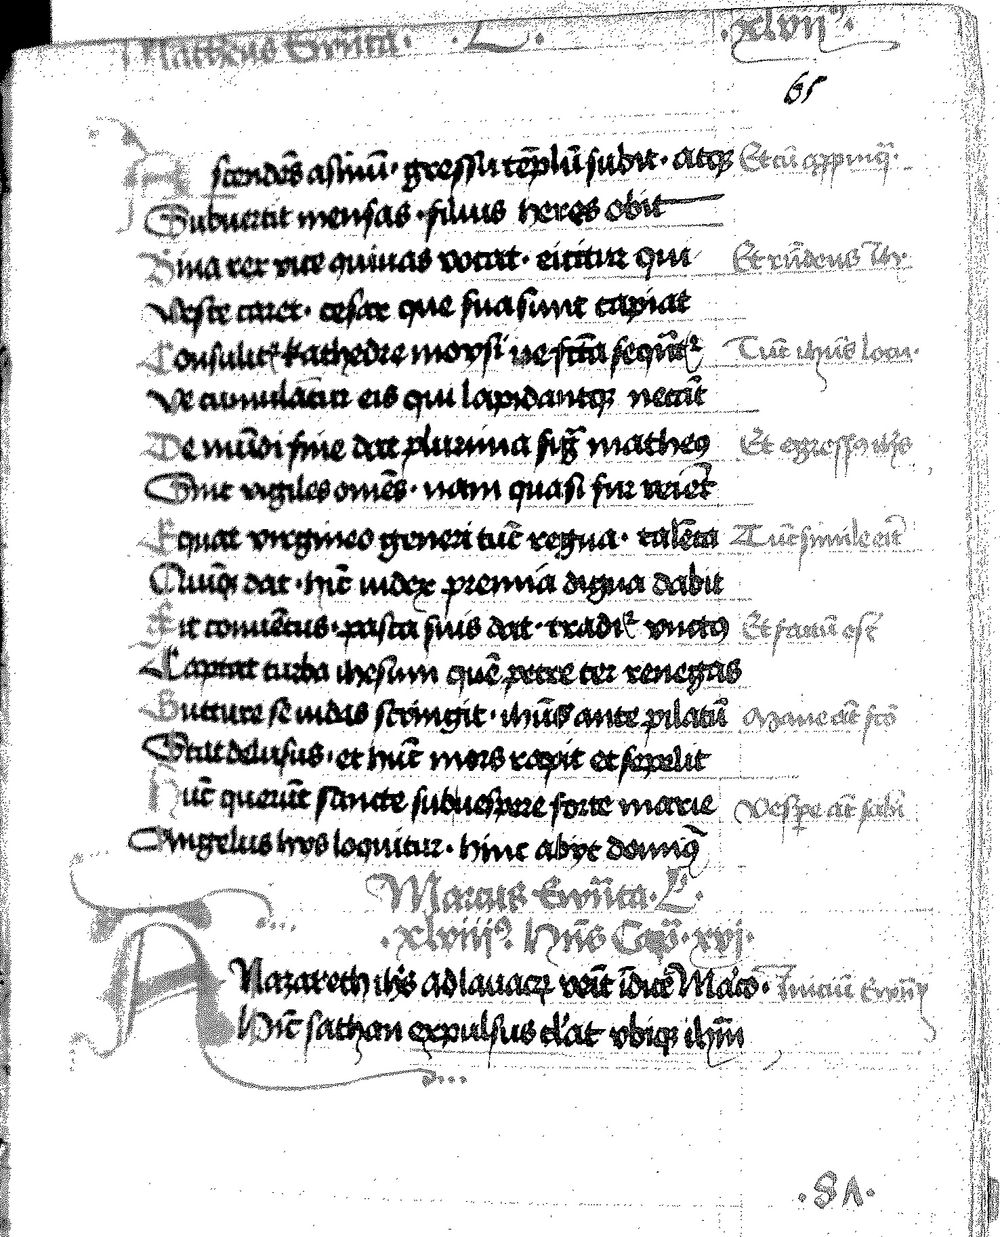 Mattheus Ewāta · L · xlvii⁹ ·
65
Ascendēs asinū · gressu tēplū subit · atqꝫ Et cū appīq̄ ·
Subuertit mensas · filius heres obit
Bina rex vite quiuas vocat · eicitur qui Et rn̄dens ih̄c ·
Veste caret · cesar que sua sunt capiat
Consulit kathedre moysi ve fc̄ta Tūc ihūs locu ·
Ve cumulātur eis qui lapidantqꝫ necāt
De mūdi fine dat plurima siḡ matheo Et egressus ih̄s
Sint vigiles om̄es · nam quasi fur veīet
Equat virgineo generi tūc regna · talēta Tūc simile eīt
Quīqꝫ dat · hīc iudex premia digna dabit
Fit conuētus · pasta suis dat · tradit vnctꝰ Et factū est
Captat turba ihesum quē petre ter renegas
Gutture se iudas stringit · ihūs ante pilatū Mane āt fc̄o
Stat delusus · et hūc mors rapit et sepelit
Hūc querūt sancte sub vespere forte marie Vespe āt sab̄i
Angelus hijs loquitur · hinc abijt
Marcus Ewn̄ta · L ·
· xlviij⁹ · Hn̄s Cap̄ · xvi ·
A Nazareth ih̄s ad lauacꝝ veīt īduc̄ Maco · Iniciū Ewn̄g
Hīc sathan expulsus cl̄at vbiqꝫ ih̄m
· 81 ·